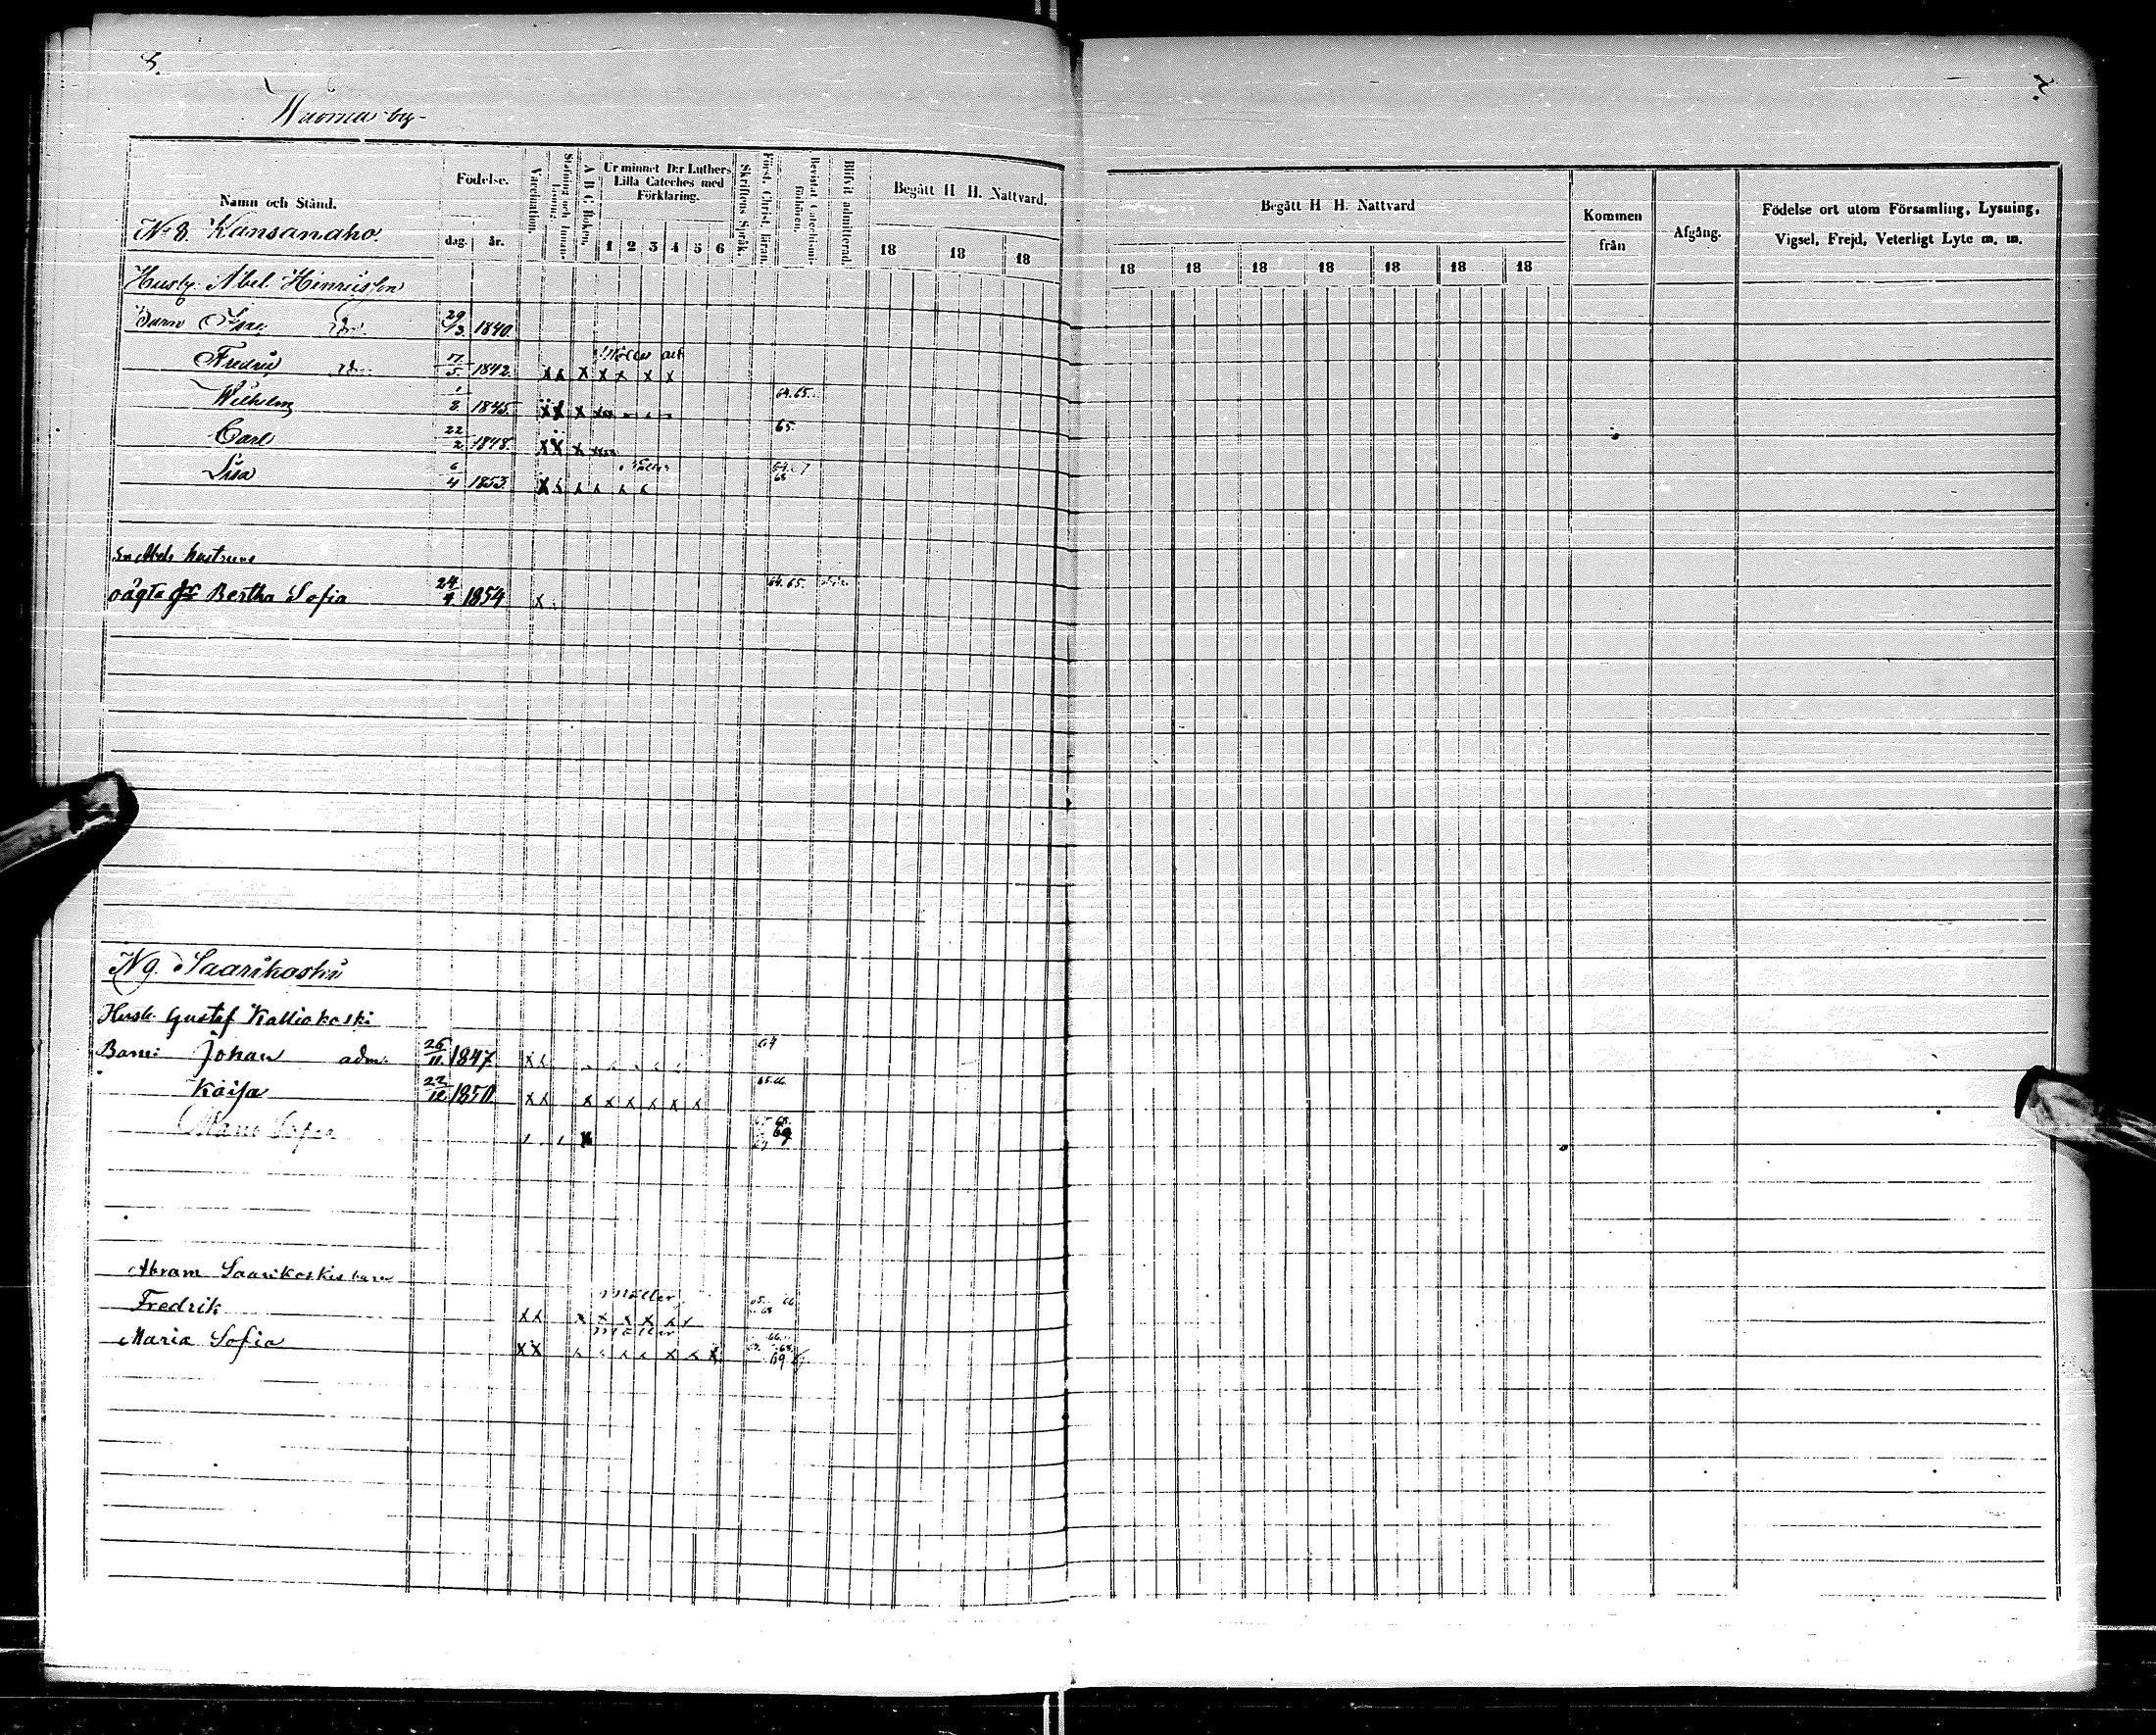 8.
by
Namn och Stånd.
Födelse.
dag. år.
Vaccination.
A B C Boken.
Ur minnet D:r Luthers
Lilla Cateches med
Förklaring.
1 2 3 4 5 6
Skriftens Språk.
Först. Christ. läran.
Bevistat Catechismi
förhören.
Blifvit admitterad.
Begått H H. Nattvard.
18 18 18
Begått H H. Nattvard
18 18 18 18 18 18 18
Kommen
från
Afgång.
Födelse ort utom Församling, Lysning,
Vigsel, Frejd, Veterligt Lyte m. m.
N 8. Kansanaho.
Abel Hinricsson
Barn 29/3 1840.
Fredric 17/5 1842.
Wilhelm 1/8 1845. 64.65.
Carl 22/2 1848. 65.
Lisa 6/4 1853.
hustrus
oägta Bertha Sofia 24/4 1854 64.65.
N 9. Saarikoski
Gustaf Kalliokoski
Barn: Johan adm. 26/11 1847. 64
Kaisa 22/12 1850. 65.66.
Maria Sofia 69
Abram Saarikoskis barn
Fredrik Möller
Maria Sofia Möller 69